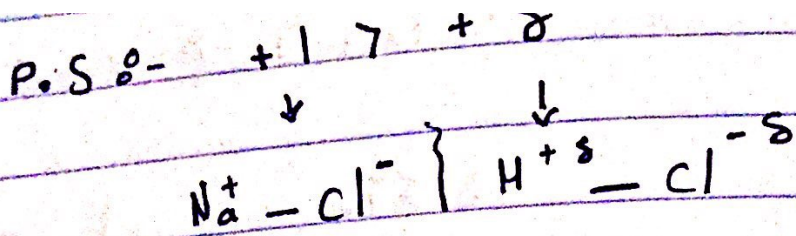 P.S :- +1 > + δ
↓ ↓
Na⁺ - Cl⁻ } H⁺ᵟ - Cl⁻ᵟ